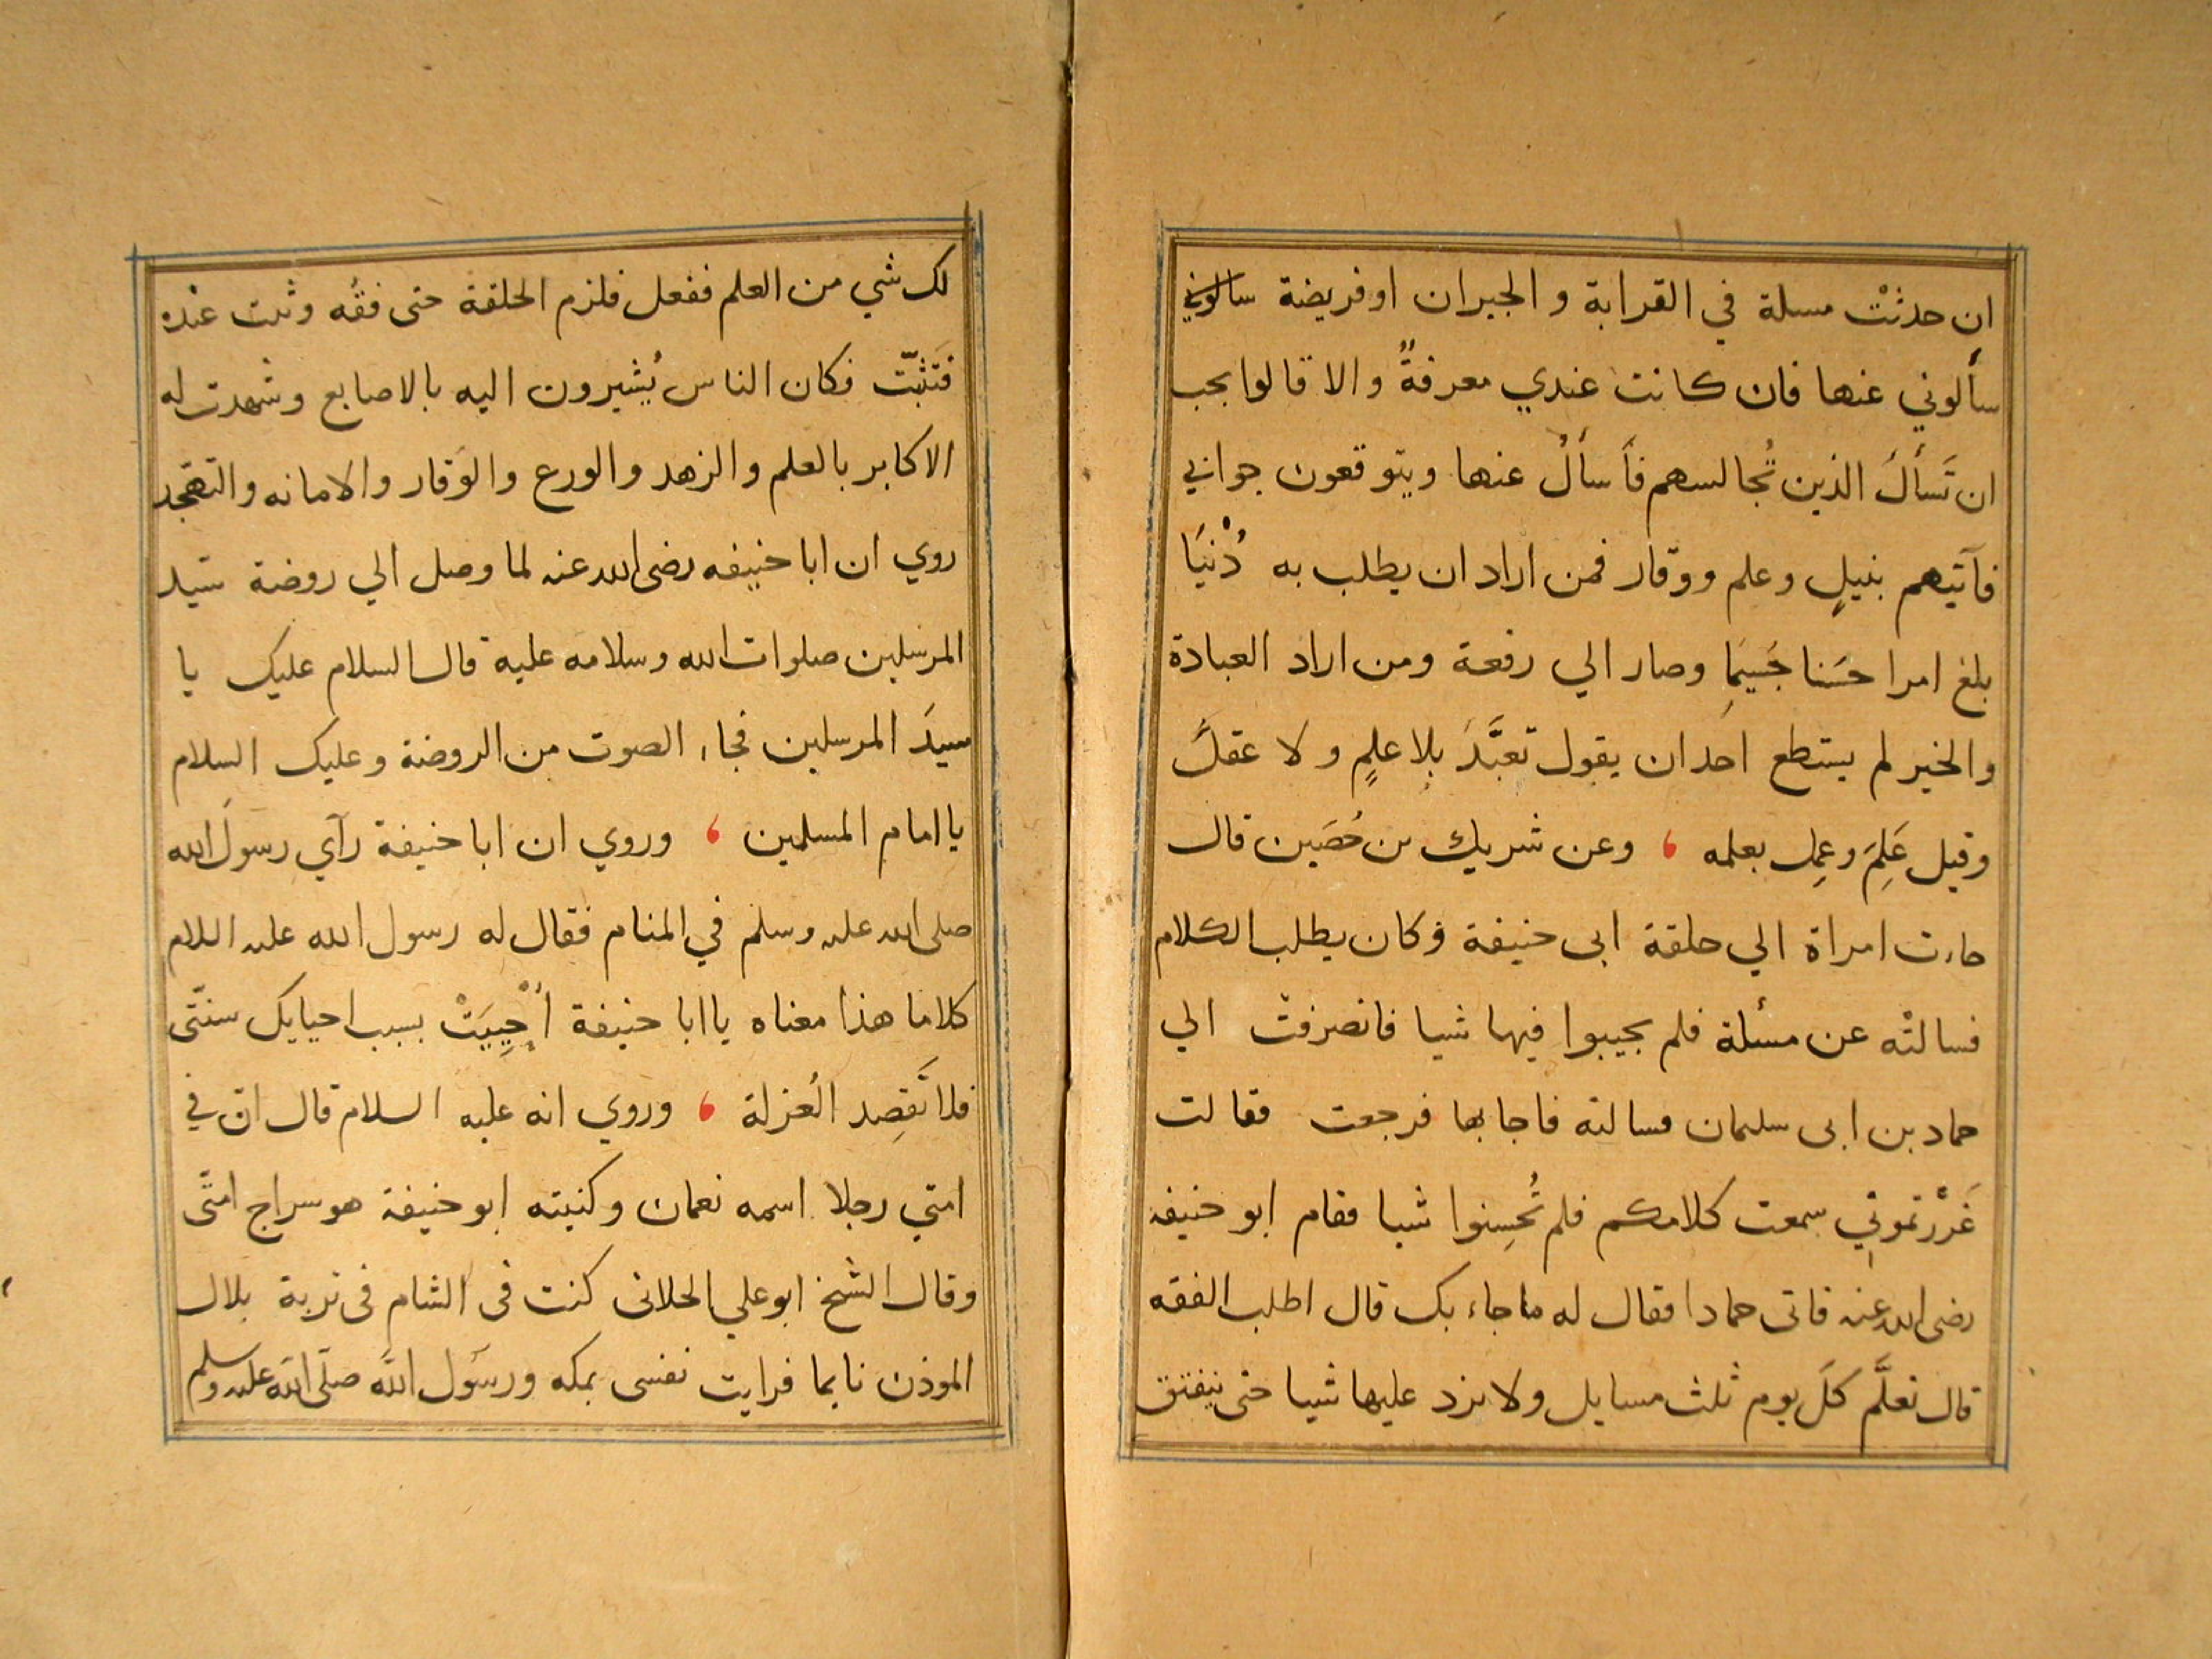 ان حدثتْ مسلة في القرابة و الجيران او فريضة سالوني
سألوني عنها فان كانت عندي معرفةٌ والا قالوا يجب
ان تَسأَلَ الذين تُجالسهم فأَسأَلُ عنها ويتوقعون جوابي
فآتيهم بنيلٍ وعلم ووقار فمن اراد ان يطلب به دُنْيَا
بلغ امرا حَسَنا جَسِيمَا وصار الي رفعة ومن اراد العبادة
والخير لم يستطع احَد ان يقول تعبَّدَ بِلا علمٍ ولا عقلَ
وقيل عَلِمَ وعمِل بعلمه ، وعن شريك بن حُصَين قال
جاءت امراة الي حلقة ابى حنيفة وكان يطلب الكلام
فسالتْه عن مسئلة فلم يجيبوا فيها شيا فانصرفتْ الي
حماد بن ابى سليمان فسالته فاجابها فرجعت فقالت
غَرَرْتموني سمعت كلامكم فلم تُحسِنوا شيا فقام ابو حنيفه
رضى الله عنه فاتى حمادا فقال له ما جاء بك قال اطلب الفقه
قال تعلَّم كلَ يوم ثلث مسايل ولا تزد عليها شيا حتى ينفتق
لك شي من العلم ففعل فلزم الحلقة حتى فقُه وثبت عنده
فَتَثَبّت فكان الناس يُشيرون اليه بالاصابع وشهدت له
الاكابر بالعلم والزهد والورع والوَقار والامانه والتهجد
روي ان ابا حنيفه رضى الله عنه لما وصل الي روضة سيد
المرسلين صلوات الله وسلامه عليه قال السلام عليك يا
سيدَ المرسلين فجاء الصوت من الروضة وعليك السلام
يا امام المسلمين ، وروي ان ابا حنيفة رآي رسولَ الله
صلى الله عليه وسلم في المنام فقال له رسول الله عليه السلام
كلاما هذا معناه يا ابا حنيفة أُحْيِيَتْ بسبب احيايك سنتى
فلا تَقصِد العُزلة ، وروي انه عليه السلام قال ان في
امتي رجلا اسمه نعمان وكنيته ابو حنيفة هو سراج امتى
وقال الشخ ابو علي الحلانى كنت فى الشام فى تربة بلال
الموذن نايما فرايت نفسى بمكه ورسول الله صلى الله عليه وسلم